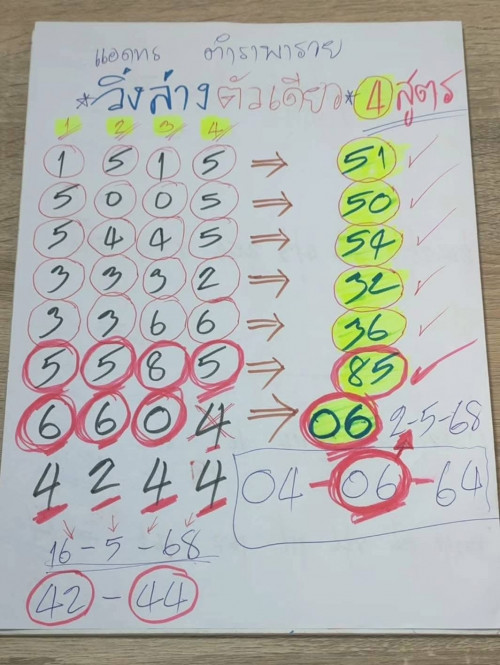 แอดทร ตำราพารวย
*วิ่งล่างตัวเดียว* 4 สูตร
1 2 3 4
1 5 1 5 → 51 ✓
5 0 0 5 → 50 ✓
5 4 4 5 → 54 ✓
3 3 3 2 → 32 ✓
3 3 6 6 → 36 ✓
5 5 8 5 → 85 ✓
6 6 0 4 → 06 2-5-68
4 2 4 4 04-06-64
16-5-68
42-44